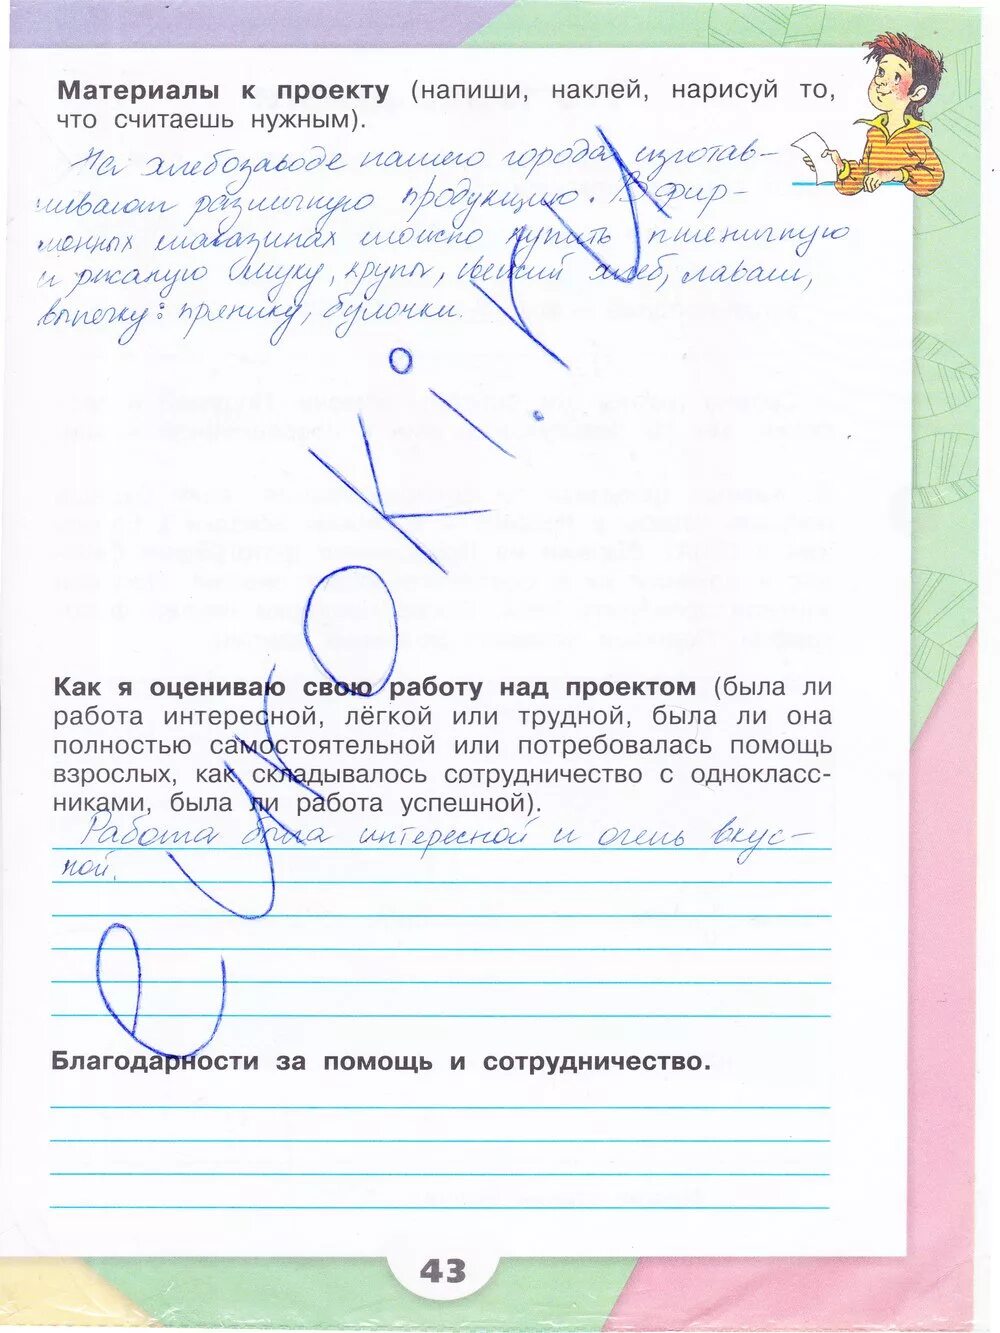 Материалы к проекту (напиши, наклей, нарисуй то,
что считаешь нужным).
На хлебозаводе нашего города изготав-
ливают различную продукцию. В фир-
менных магазинах можно купить пшеничную
и ржаную муку, крупы, свежий хлеб, лаваш,
выпечку: пряники, булочки.
Как я оцениваю свою работу над проектом (была ли
работа интересной, лёгкой или трудной, была ли она
полностью самостоятельной или потребовалась помощь
взрослых, как складывалось сотрудничество с однокласс-
никами, была ли работа успешной).
Работа была интересной и очень вкус-
ной.
Благодарности за помощь и сотрудничество.
43